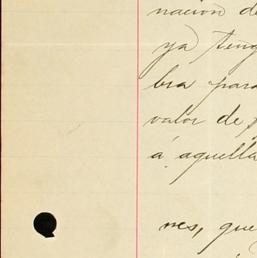 nacion de
ya teng
bra para
valor de p
á aquella
nes, que